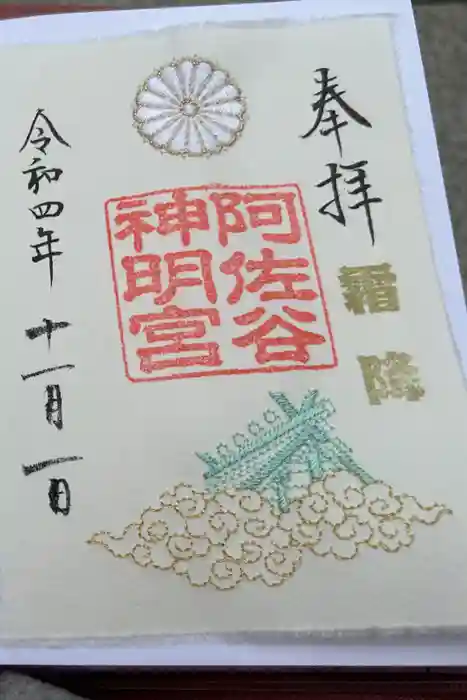 奉拝
霜降
阿佐谷
神明宮
令和四年十一月一日